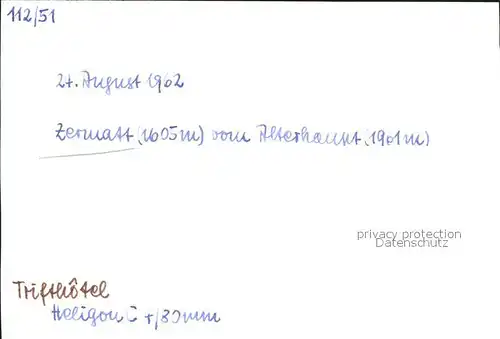 112/51
27. August 1962
Zermatt (1605m) vom Alterhaupt (1961m)
privacy protection
Datenschutz
Trifthôtel
Heligon